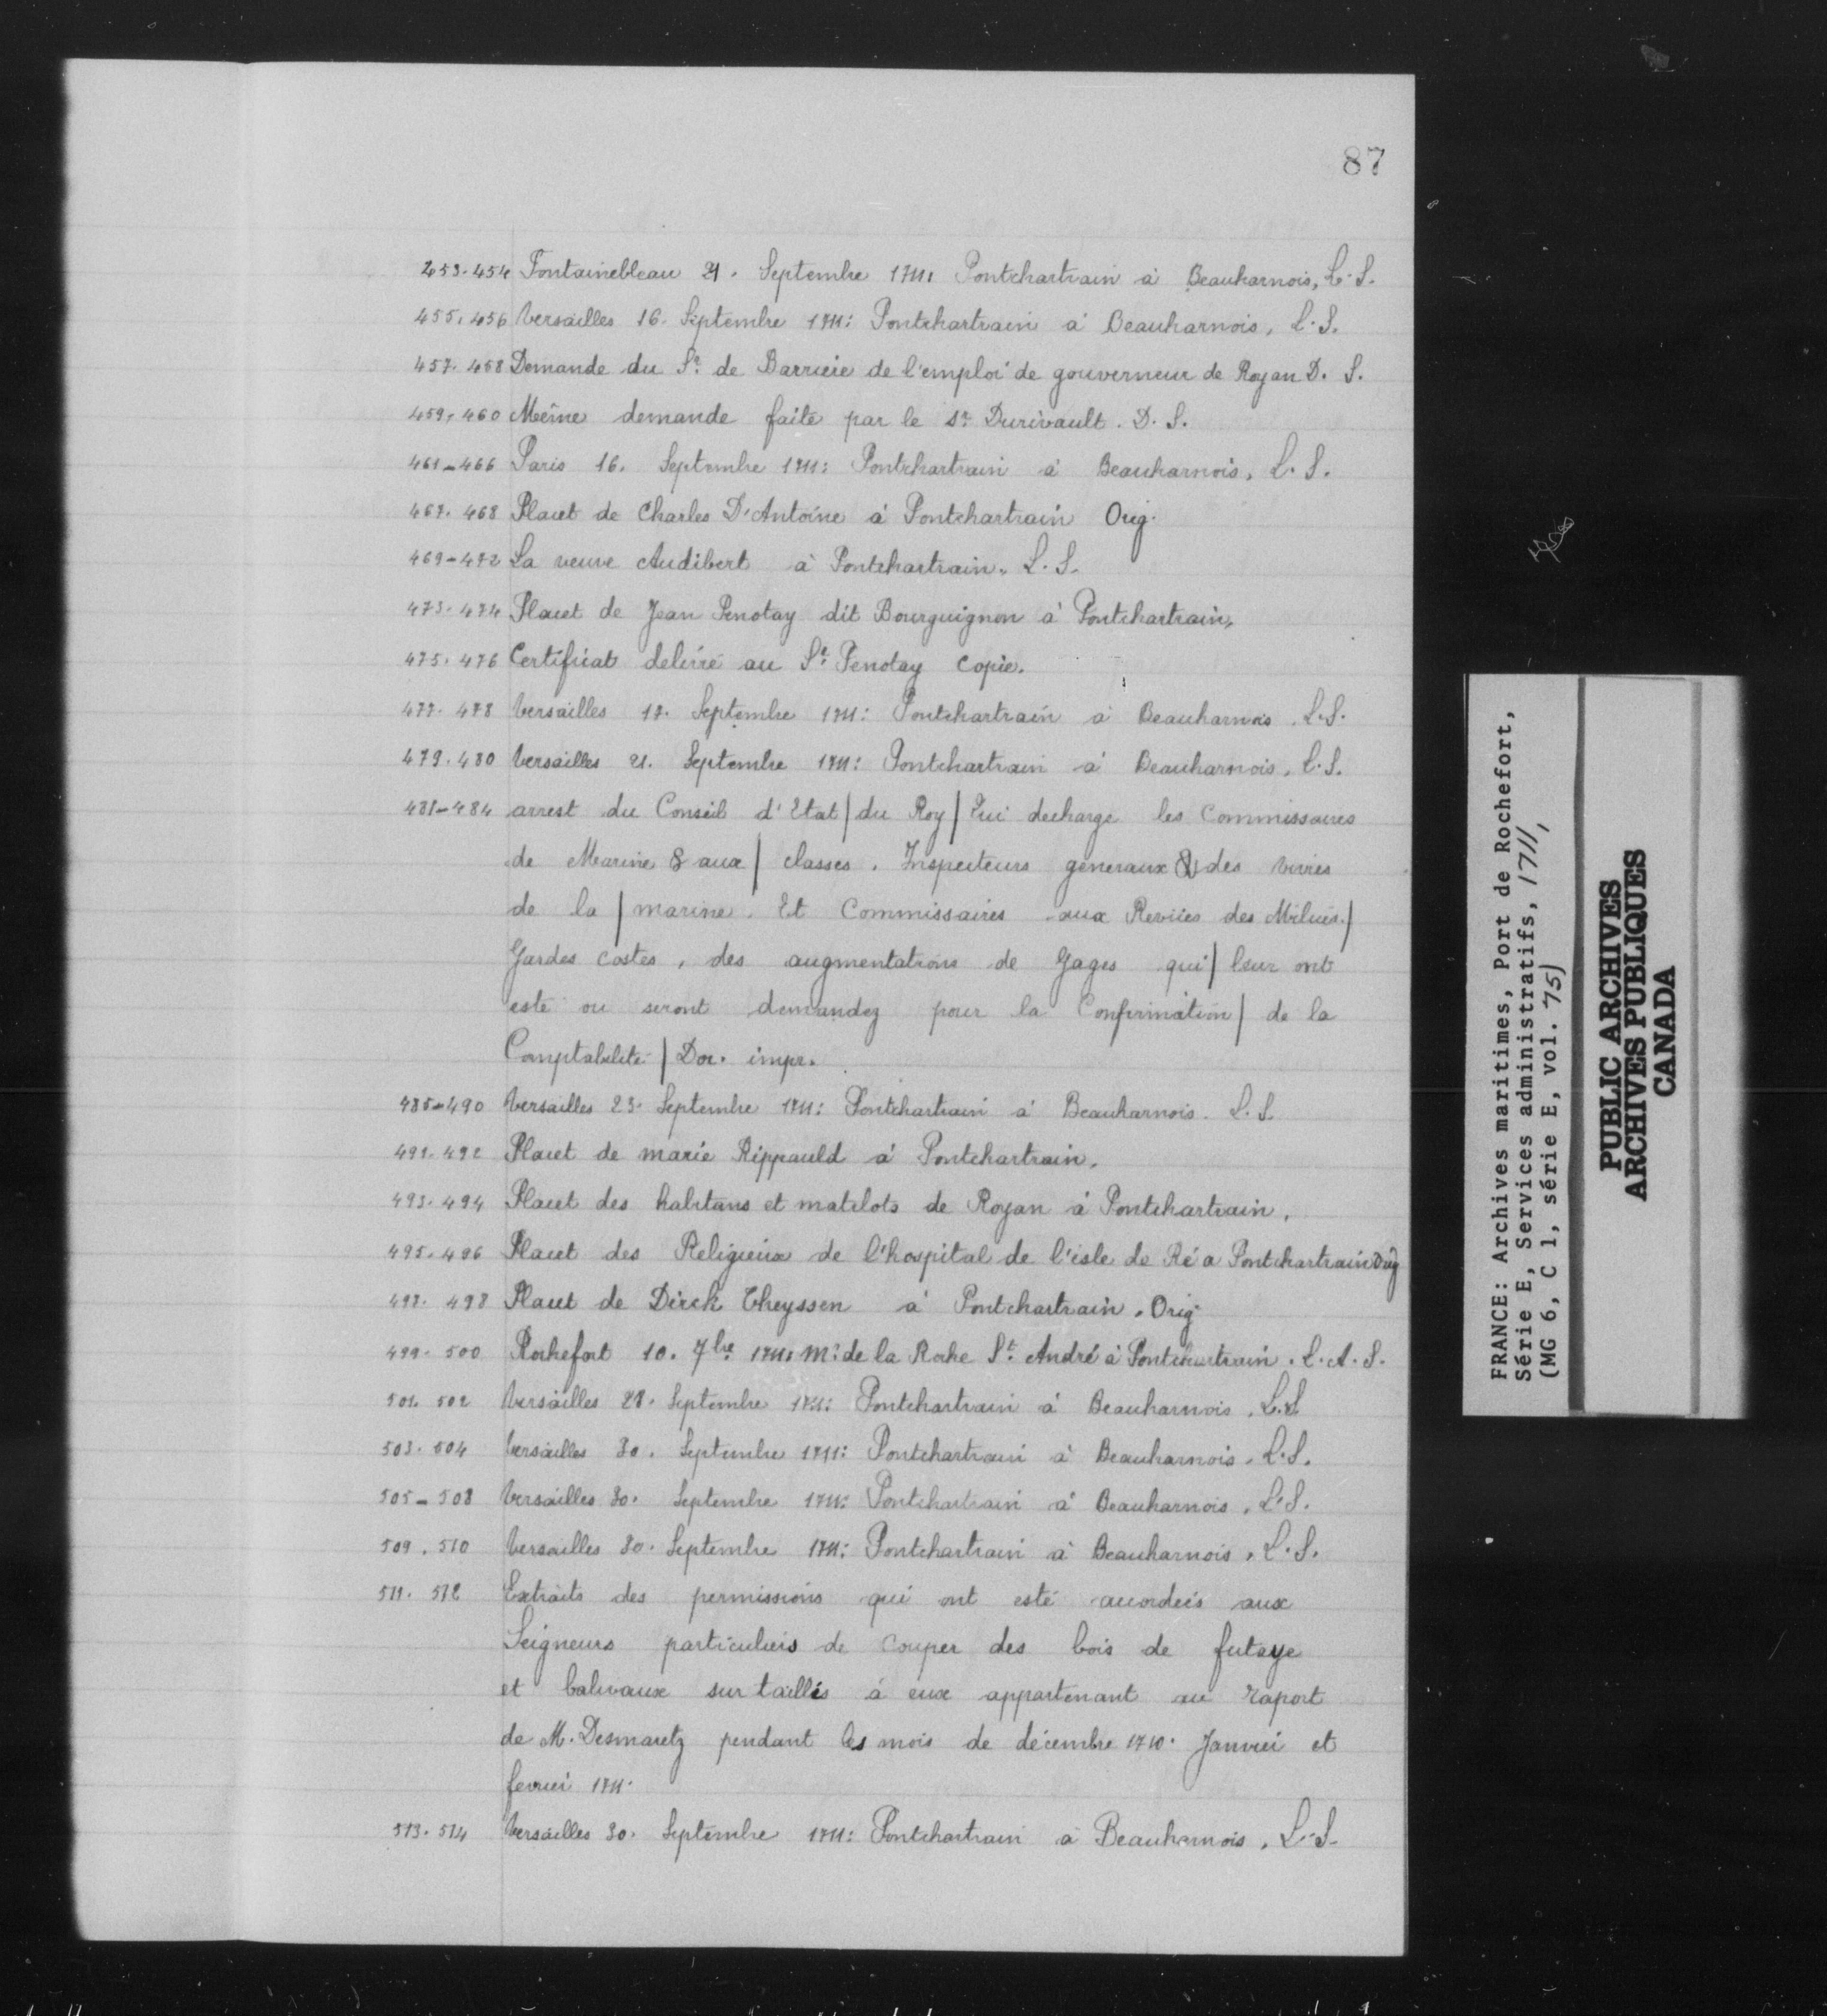 87
453-454 Fontainebleau 21. Septembre 1711: Pontchartrain à Beauharnois, L.S.
455.456 Versailles 16. Septembre 1711: Pontchartrain à Beauharnois, L.S.
457.458 Demande du Sr. de Barriere de l'emploi de gouverneur de Royan D. S.
459.460 Meême demande faite par le sr. Durivault. D.S.
461-466 Paris 16. Septembre 1711: Pontchartrain à Beauharnois, L.S.
467.468 Placet de Charles D'Antoine à Pontchartrain Orig.
469-472 La veuve Audibert à Pontchartrain. L.S.
473.474 Placet de Jean Penotay dit Bourguignon à Pontchartrain,
475.476 Certificat deliré au Sr. Penotay Copie.
477.478 Versailles 17. Septembre 1711: Pontchartrain à Beauharnois. L.S.
479.480 Versailles 21. Septembre 1711: Pontchartrain à Beauharnois, L.S.
481-484 arrest du Conseil d'Etat | du Roy | Qui decharge les Commissaires
de Marine & aux | classes. Inspecteurs generaux & des vivres
de la | marine. Et Commissaires aux Reviies des Milices. |
Gardes Costes, des augmentations de Gages qui | leur ont
esté ou seront demandez pour la Confirmation | de la
Comptabilité | Doc. impr.
485-490 Versailles 23. Septembre 1711: Pontchartrain à Beauharnois. L.S.
491.492 Placet de marie Rippauld à Pontchartrain.
493.494 Placet des habitans et matelots de Royan à Pontchartrain.
495.496 Placet des Religieux de l'hospital de l'isle de Ré a Pontchartrain Orig
497.498 Placet de Dirck Theyssen à Pontchartrain. Orig.
499.500 Rochefort 10. 7bre 1711: Mr. de la Roche St. André à Pontchartrain. L.A.S.
501.502 Versailles 28. Septembre 1711: Pontchartrain à Beauharnois. L.S.
503.504 Versailles 30. Septembre 1711: Pontchartrain à Beauharnois. L.S.
505-508 Versailles 30. Septembre 1711: Pontchartrain à Beauharnois, L.S.
509.510 Versailles 30. Septembre 1711: Pontchartrain à Beauharnois, L.S.
511.512 Extraits des permissions qui ont esté accordeés aux
Seigneurs particuliers de couper des bois de futaye
et balivaux sur taillis à eux appartenant au raport
de M. Desmaretz pendant les mois de décembre 1710. Janvier et
fevrier 1711.
513.514 Versailles 30. Septembre 1711: Pontchartrain à Beauharnois, L.S.
FRANCE: Archives maritimes, Port de Rochefort,
Série E, Services administratifs, 1711,
(MG 6, C 1, série E, vol. 75)
PUBLIC ARCHIVES
ARCHIVES PUBLIQUES
CANADA